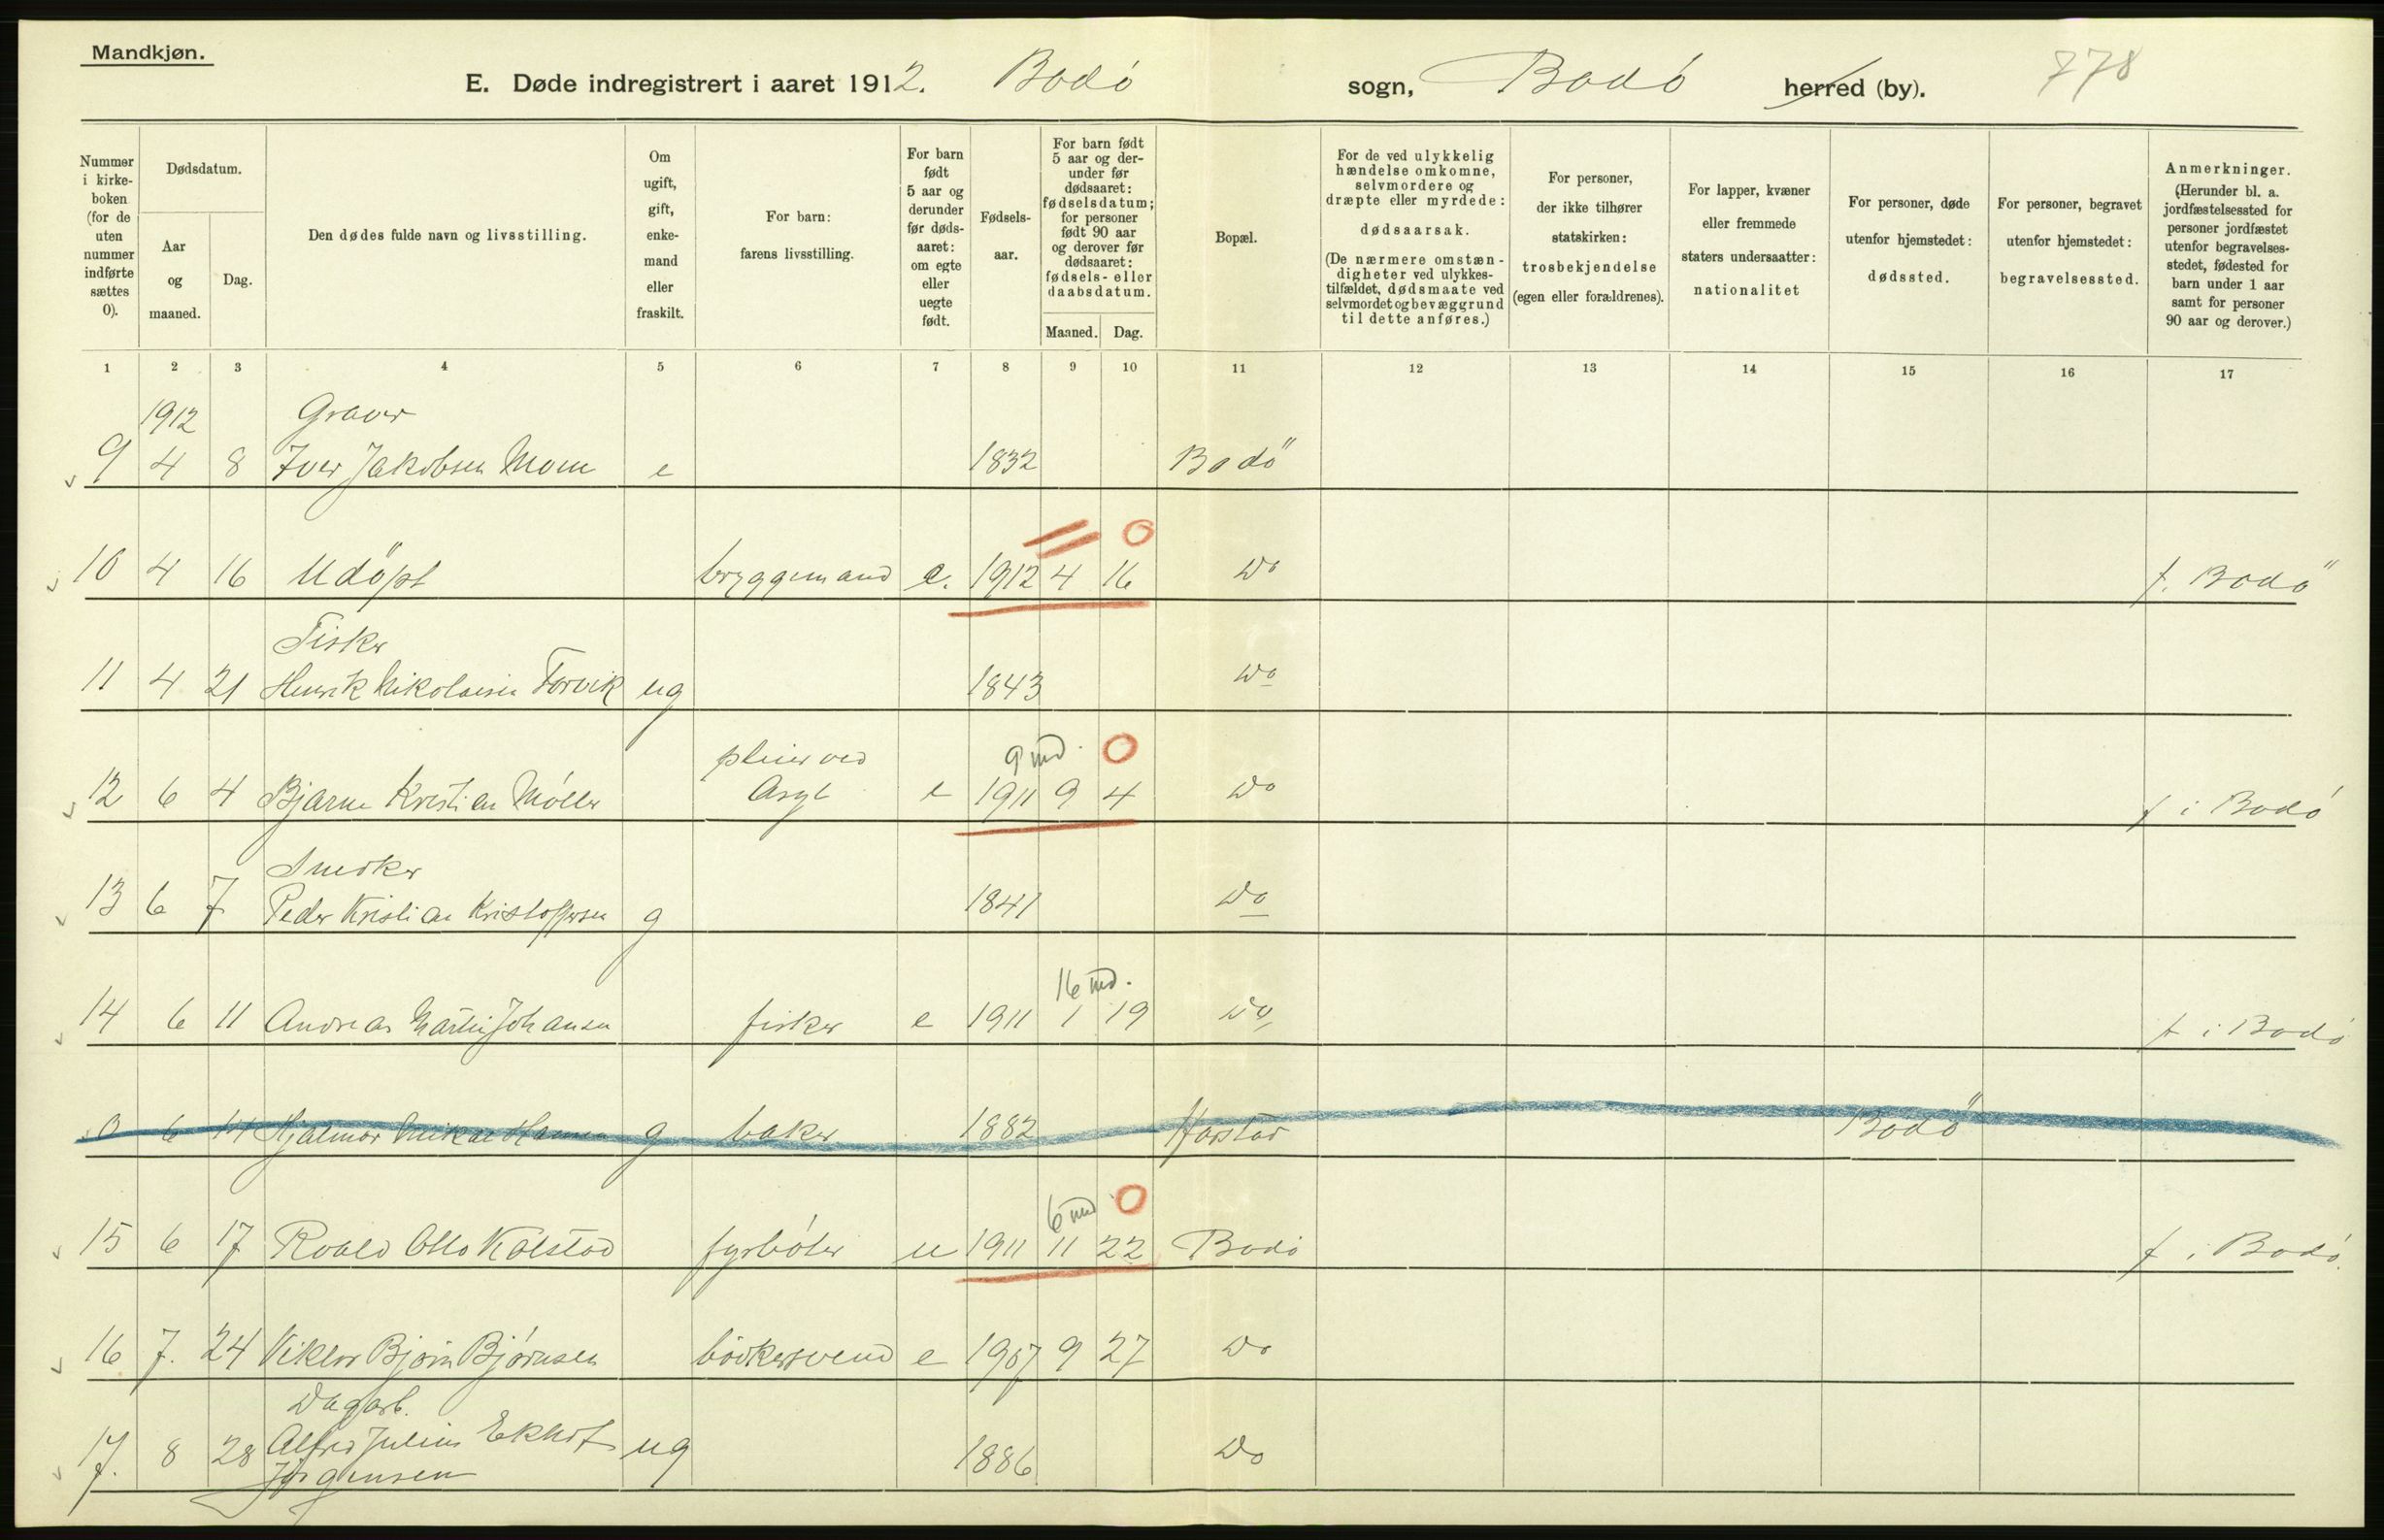 Mandkjøn.
E. Døde indregistrert i aaret 1912. Bodö sogn, Bodö herred (by). 778
Nummer i kirkeboken (for de uten nummer indførte sættes 0).
Dødsdatum.
Aar og maaned.
Dag.
Den dødes fulde navn og livsstilling.
Om ugift, gift, enkemand eller fraskilt.
For barn: farens livsstilling.
For barn født 5 aar og derunder før dødsaaret: om egte eller uegte født.
Fødselsaar.
For barn født 5 aar og derunder før dødsaaret: fødselsdatum; for personer født 90 aar og derover før dødsaaret: fødsels- eller daabsdatum.
Maaned. Dag.
Bopæl.
For de ved ulykkelig hændelse omkomne, selvmordere og dræpte eller myrdede: dødsaarsak. (De nærmere omstændigheter ved ulykkestilfældet, dødsmaate ved selvmordet og bevæggrund til dette anføres.)
For personer, der ikke tilhører statskirken: trosbekjendelse (egen eller forældrenes).
For lapper, kvæner eller fremmede staters undersaatter: nationalitet
For personer, døde utenfor hjemstedet: dødssted.
For personer, begravet utenfor hjemstedet: begravelsessted.
Anmerkninger. (Herunder bl. a. jordfæstelsessted for personer jordfæstet utenfor begravelsesstedet, fødested for barn under 1 aar samt for personer 90 aar og derover.)
1 2 3 4 5 6 7 8 9 10 11 12 13 14 15 16 17
1912 Graver
9 4 8 Iver Jakobsen Moen e 1832 Bodö
0
10 4 16 Udöpt bryggemand e. 1912 4 16 Do f. Bodö
Fisker
11 4 21 Henrik Nikolaisen Forvik ug 1843 Do
pleier ved 9 md. 0
12 6 4 Bjarne Kristian Möller Asyl e 1911 9 4 Do f i Bodö
13 6 7 Peder Kristian Kristoffersen g 1841 Do
16 md.
14 6 11 Andreas Martin Johansen fisker e 1911 1 19 Do f i Bodö
0 6 14 Hjalmar Mikal Hansen g baker 1882 Harstad Bodö
6 md 0
15 6 17 Roald Otto Kolstad fyrböter u 1911 11 22 Bodö f i Bodö.
16 7. 24 Viktor Björn Björnsen bödkersvend e 1907 9 27 Do
Dagarb.
17. 8 28 Alfred Julius Ekhof ug 1886 Do
Jörgensen